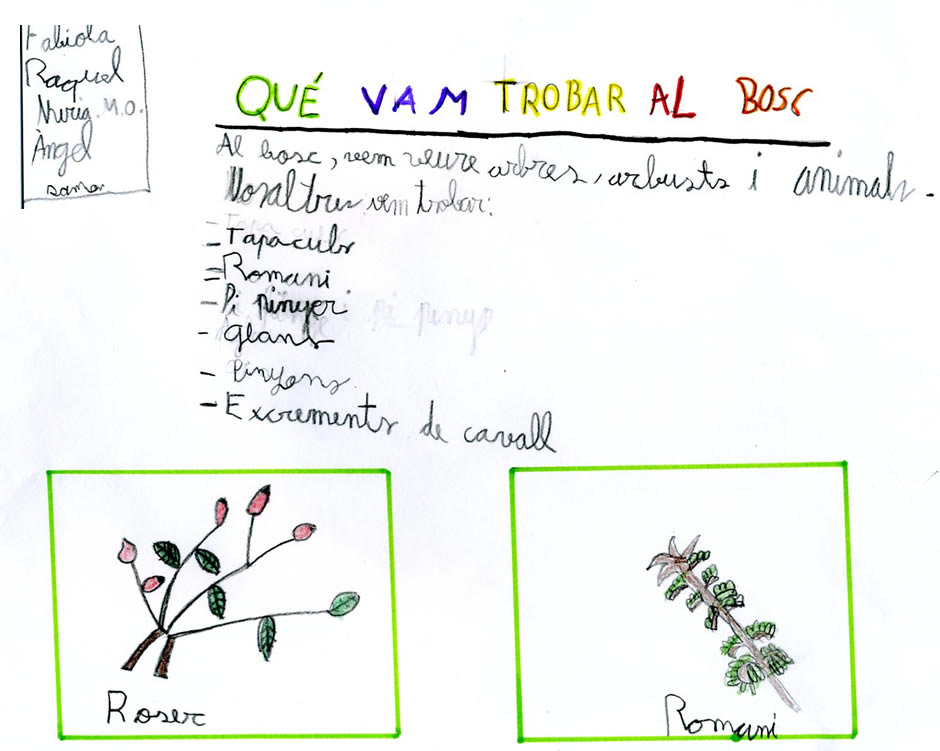 Fabiola
Raquel
Nuria M.O.
Àngel
samar
QUÉ VAM TROBAR AL BOSC
Al bosc, vem veure arbres, arbusts i animals.
Nosaltres vem trobar:
- Tapaculs
- Romani
- Pi pinyer
- Glans
- Pinyons
- Excrements de cavall
Roser
Romani